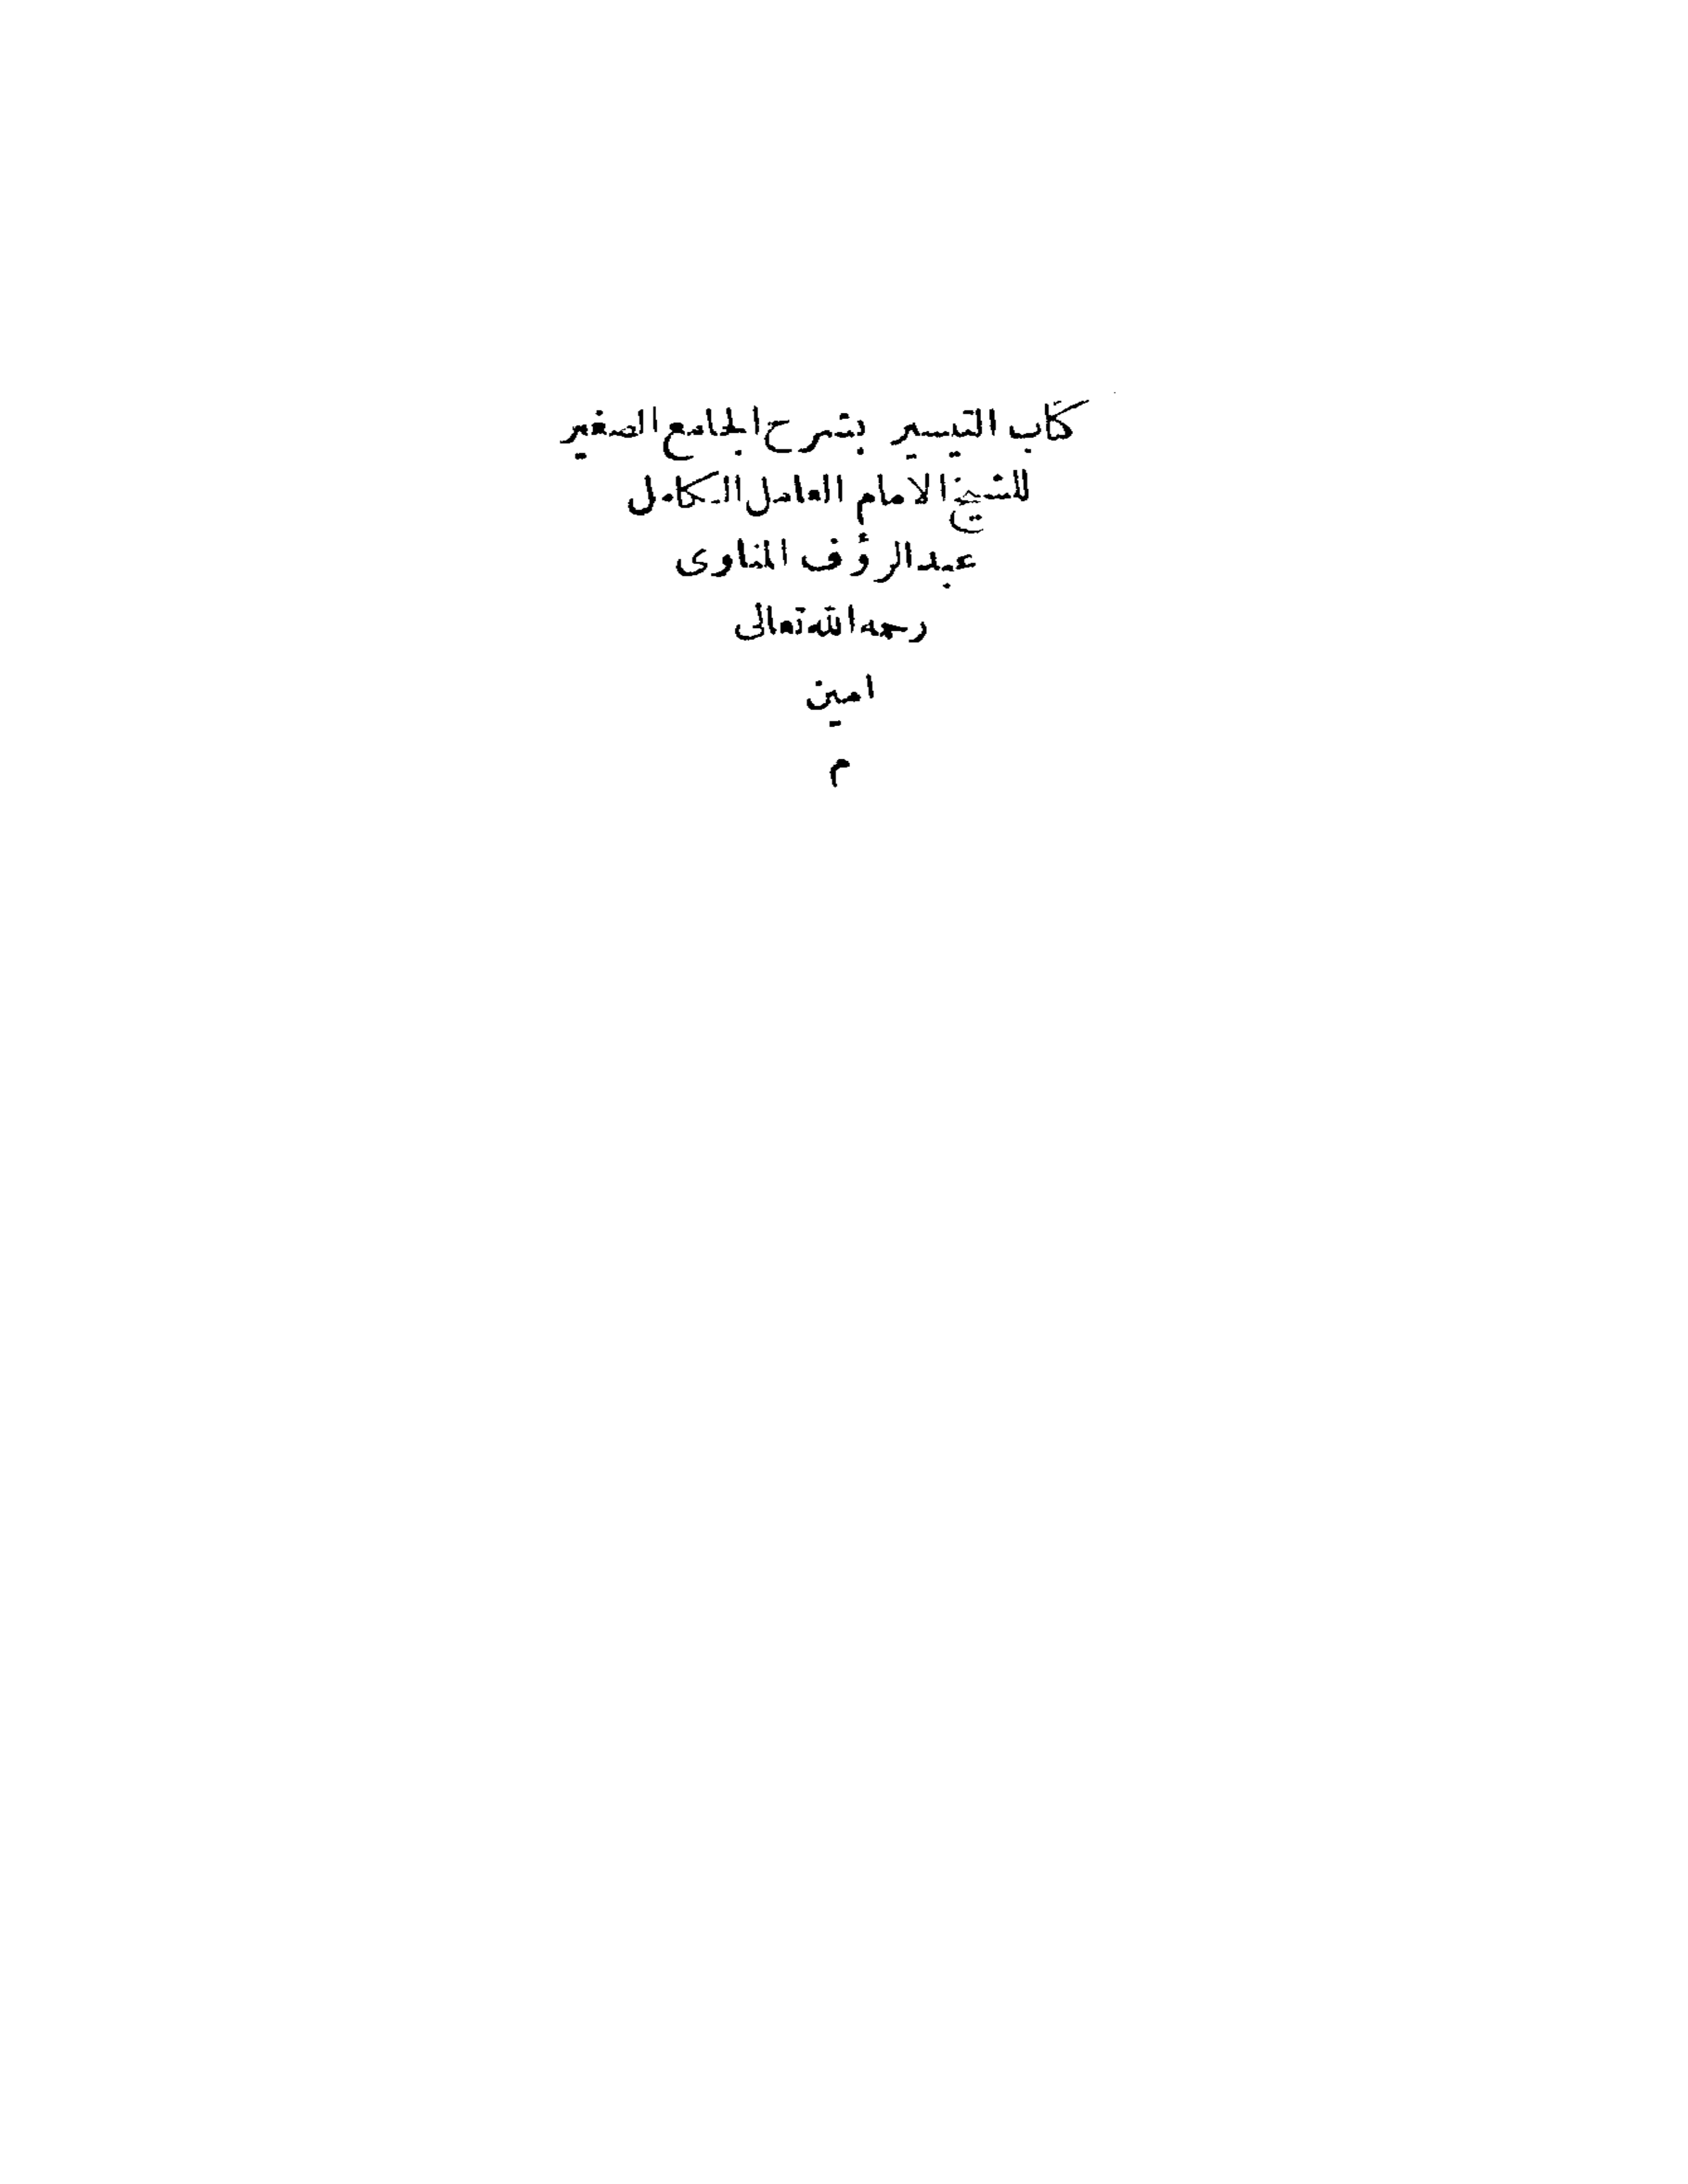 كتاب التيسير بشرح الجامع الصغير
للشيخ الامام العامل الكامل
عبد الرؤف المناوى
رحمه الله تعالى
امين
م